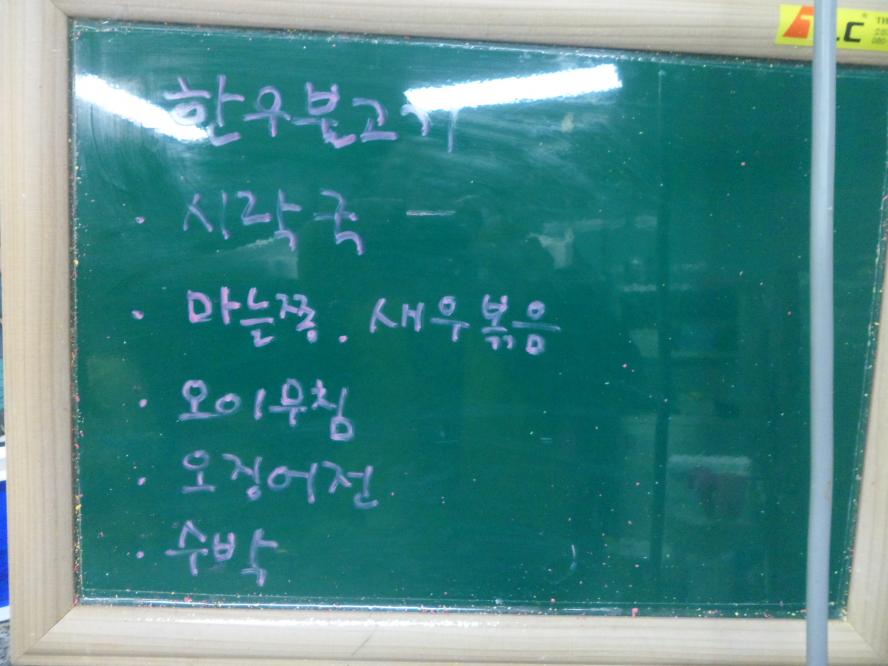 한우불고기
· 시락국 -
· 마늘쫑. 새우볶음
· 오이무침
· 오징어전
· 수박